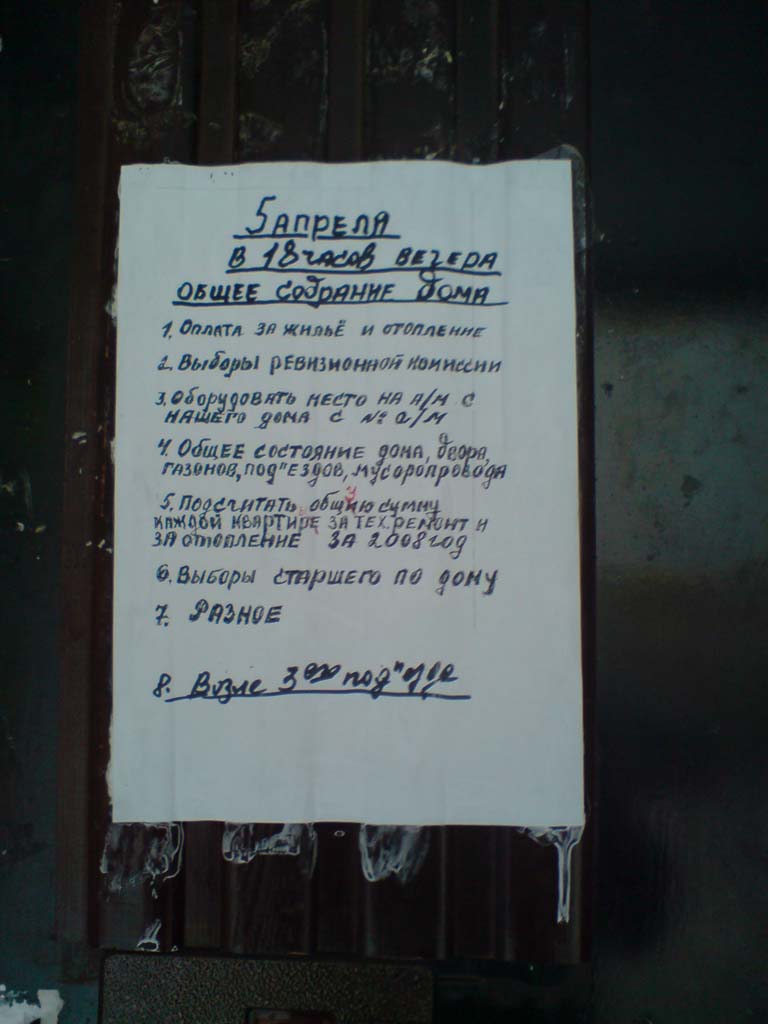 5 АПРЕЛЯ
В 18 ЧАСОВ ВЕЧЕРА
ОБЩЕЕ СОБРАНИЕ ДОМА
1. ОПЛАТА ЗА ЖИЛЬЁ И ОТОПЛЕНИЕ
2. ВЫБОРЫ РЕВИЗИОННОЙ КОМИССИИ
3. ОБОРУДОВАТЬ МЕСТО НА А/М С
НАШЕГО ДОМА С № А/М
4. ОБЩЕЕ СОСТОЯНИЕ ДОМА, ДВОРА,
ГАЗОНОВ, ПОД"ЕЗДОВ, МУСОРОПРОВОДА
5. ПОДСЧИТАТЬ ОБЩУЮ СУММУ
КАЖДОЙ КВАРТИРЕ ЗА ТЕХ. РЕМОНТ И
ЗА ОТОПЛЕНИЕ ЗА 2008 ГОД
6. ВЫБОРЫ СТАРШЕГО ПО ДОМУ
7. РАЗНОЕ
8. Возле 3ого под"езда